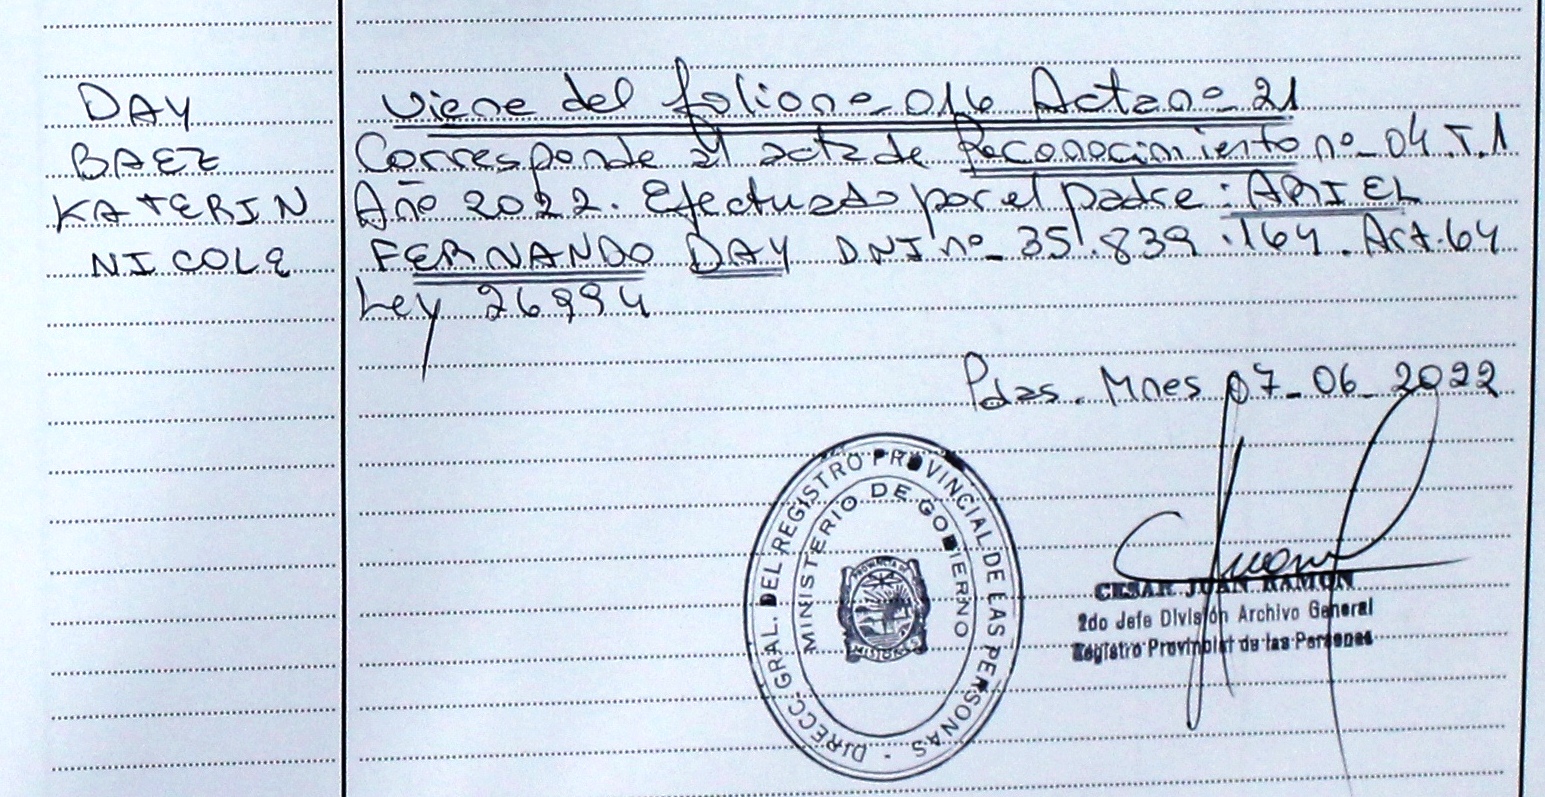 DAY
BAEZ
KATERIN
NICOLE
Viene del folio nº 016 Acta nº 21
Corresponde al acta de Reconocimiento nº 04.T.1
Año 2022. Efectuado por el padre: ARIEL
FERNANDO DAY DNI nº 35.839.164. Art. 64
Ley 26994
Pdas. Mnes 07-06-2022
DIRECC. GRAL. DEL REGISTRO PROVINCIAL DE LAS PERSONAS -
MINISTERIO DE GOBIERNO
PROVINCIA DE
MISIONES
CESAR JUAN RAMON
2do Jefe División Archivo General
Registro Provincial de las Personas